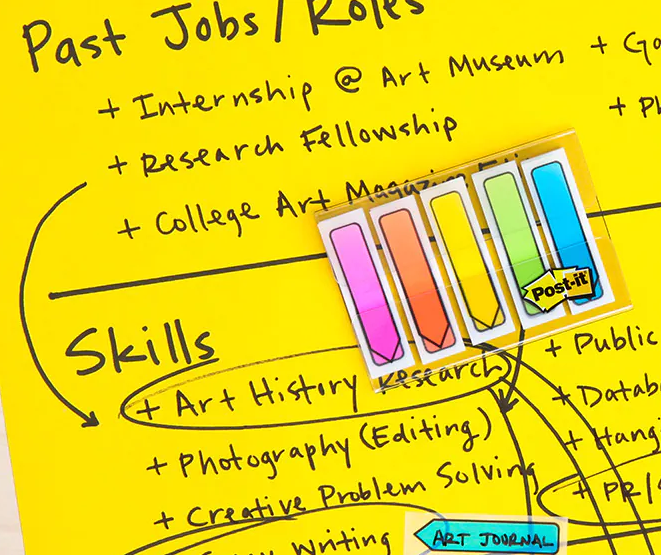 Past Jobs/Roles
+ Internship @ Art Museum
+ Research Fellowship
+ College Art Magazine
+
+
Skills
+ Art History Research
+ Photography (Editing)
+ Creative Problem Solving
Writing
+ Public
+
+
+ PR/
Post-it
ART JOURNAL